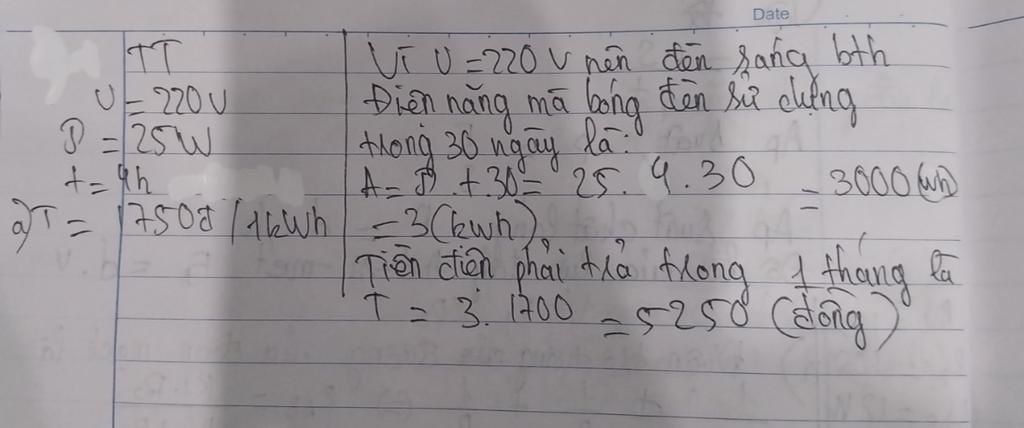 Date
TT
U = 220V
P = 25W
t = 4h
a) T = 1750đ / 1kWh
Vì U = 220V nên đèn sáng bth
Điện năng mà bóng đèn sử dụng
trong 30 ngày là:
A = P t 30 = 25. 4. 30 = 3000 (Wh)
= 3 (kWh)
Tiền điện phải trả trong 1 tháng là
T = 3. 1700 = 5250 (đồng)